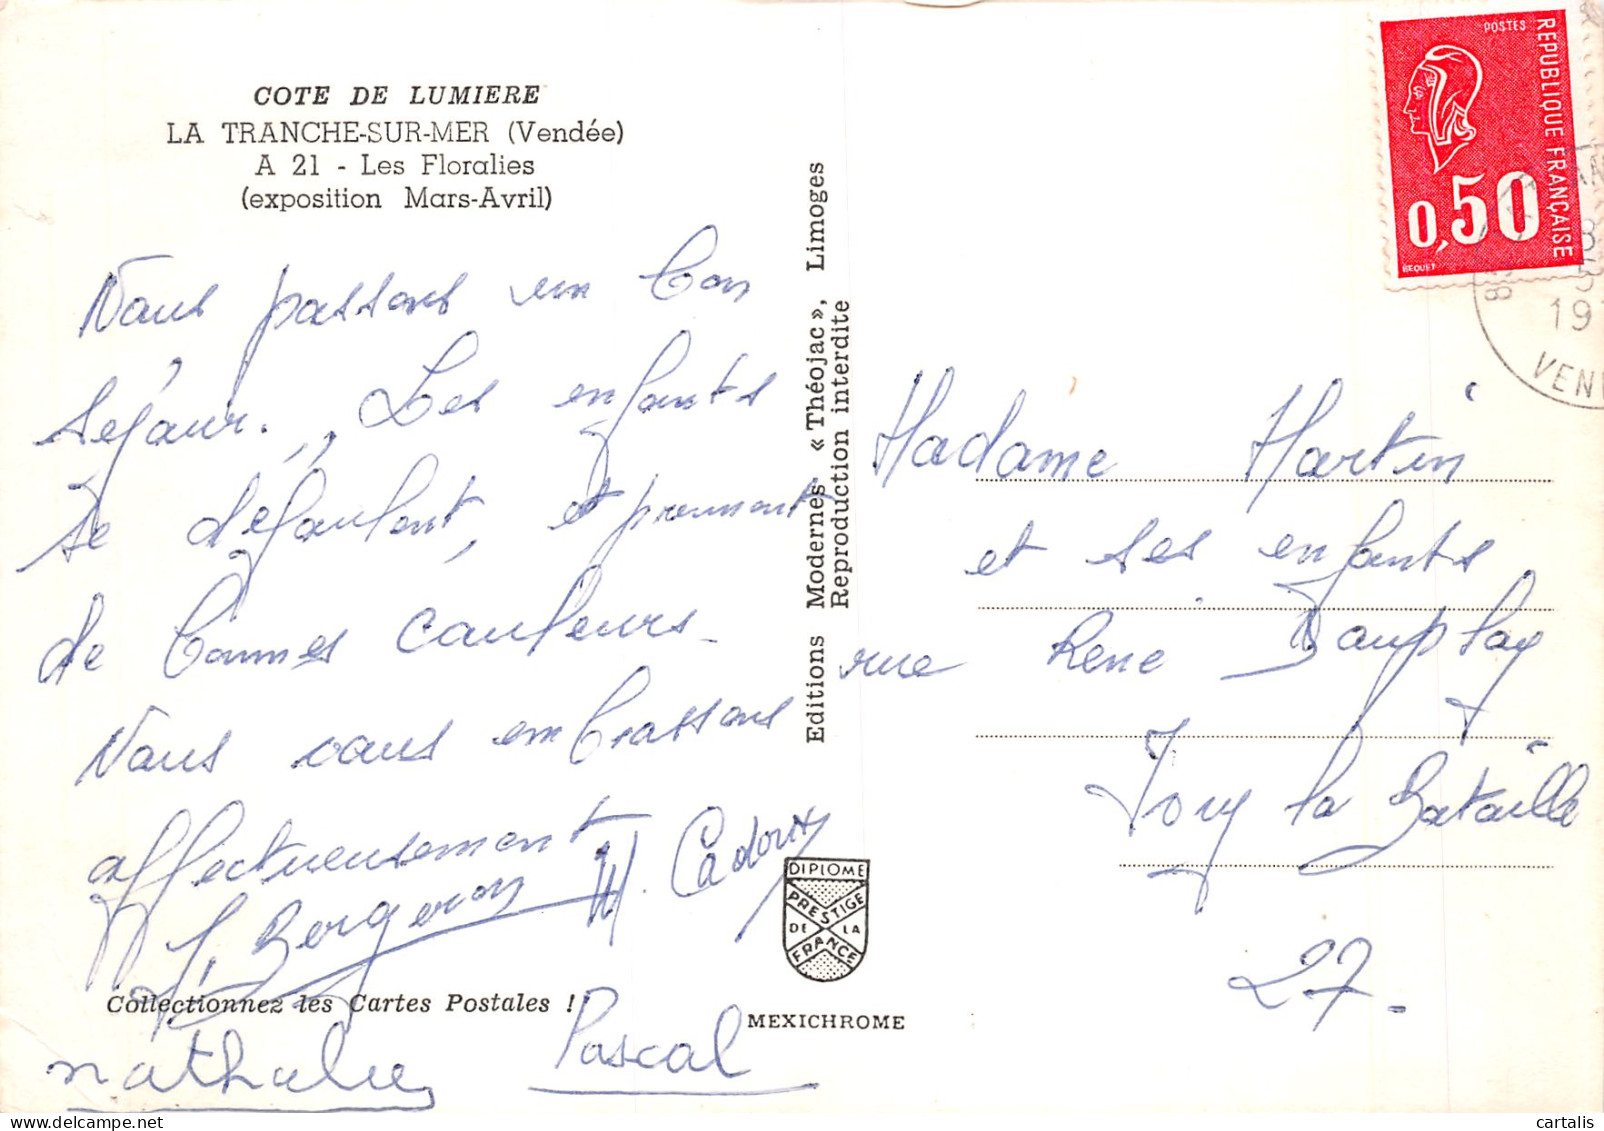 COTE DE LUMIERE
LA TRANCHE-SUR-MER (Vendée)
A 21 - Les Floralies
(exposition Mars-Avril)
Nous passons un bon
séjour. Les enfants
se défoulent, et prennent
de bonnes couleurs.
Nous vous embrassons
affectueusement
Bergeron M. Cadoux
Collectionnez les Cartes Postales !
nathalie Pascal
Editions Modernes « Théojac », Limoges
Reproduction interdite
DIPLOME
PRESTIGE
DE LA
FRANCE
MEXICHROME
POSTES
REPUBLIQUE FRANÇAISE
0,50
BEQUET
19
VEN
Madame Martin
et ses enfants
rue René Dauplay
Ivry la Bataille
27.
cartalis
www.delcampe.net